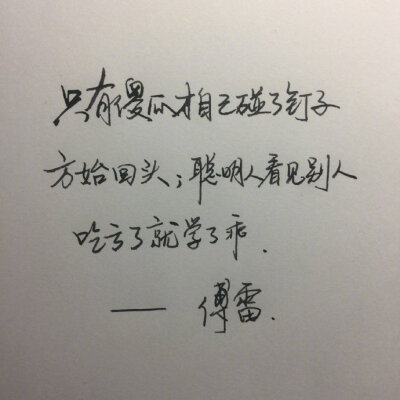 只有傻瓜才自己碰了钉子
方始回头；聪明人看见别人
吃亏了就学了乖.
—— 傅雷.